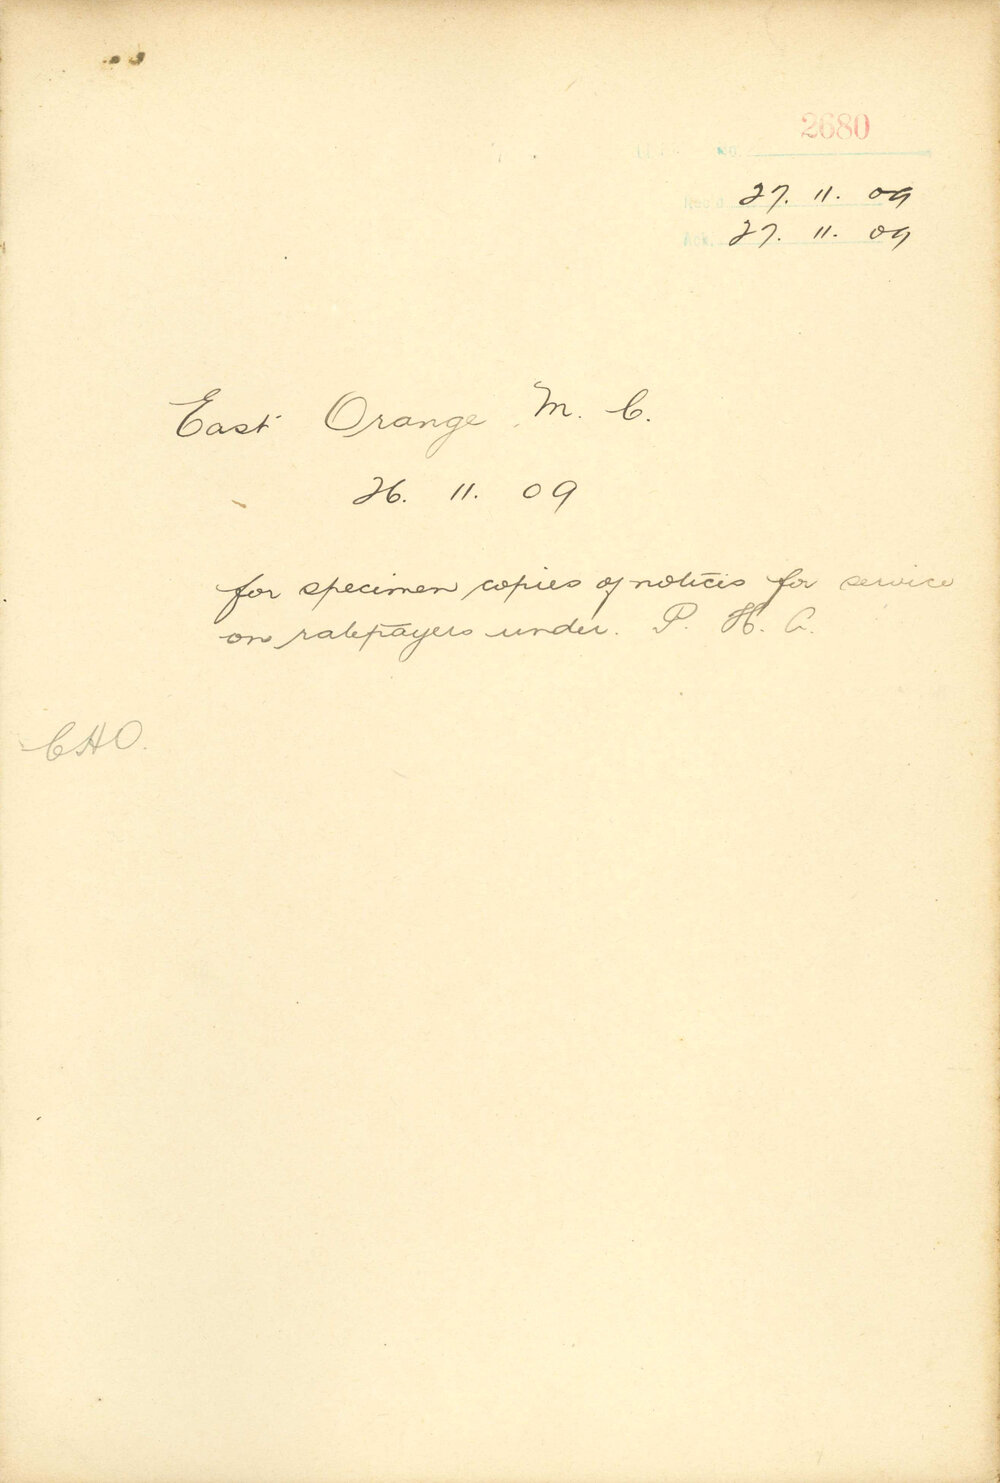 2680
No.
Rec'd 27. 11. 09
Ack. 27. 11. 09
East Orange M. C.
26. 11. 09
for specimen copies of notices for service
on ratepayers under. P. H. A.
CHO.